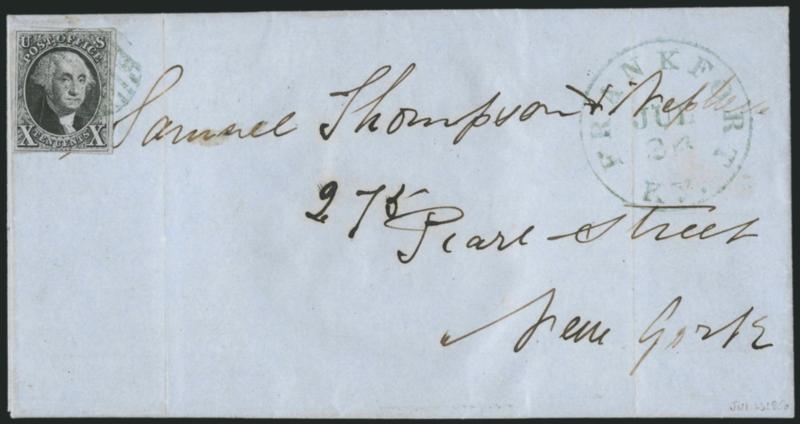 U S
POST OFFICE
X TEN CENTS X
FRANKFORT
JUL
24
KY.
Samuel Thompson & Nephew
275
Pearl Street
New York